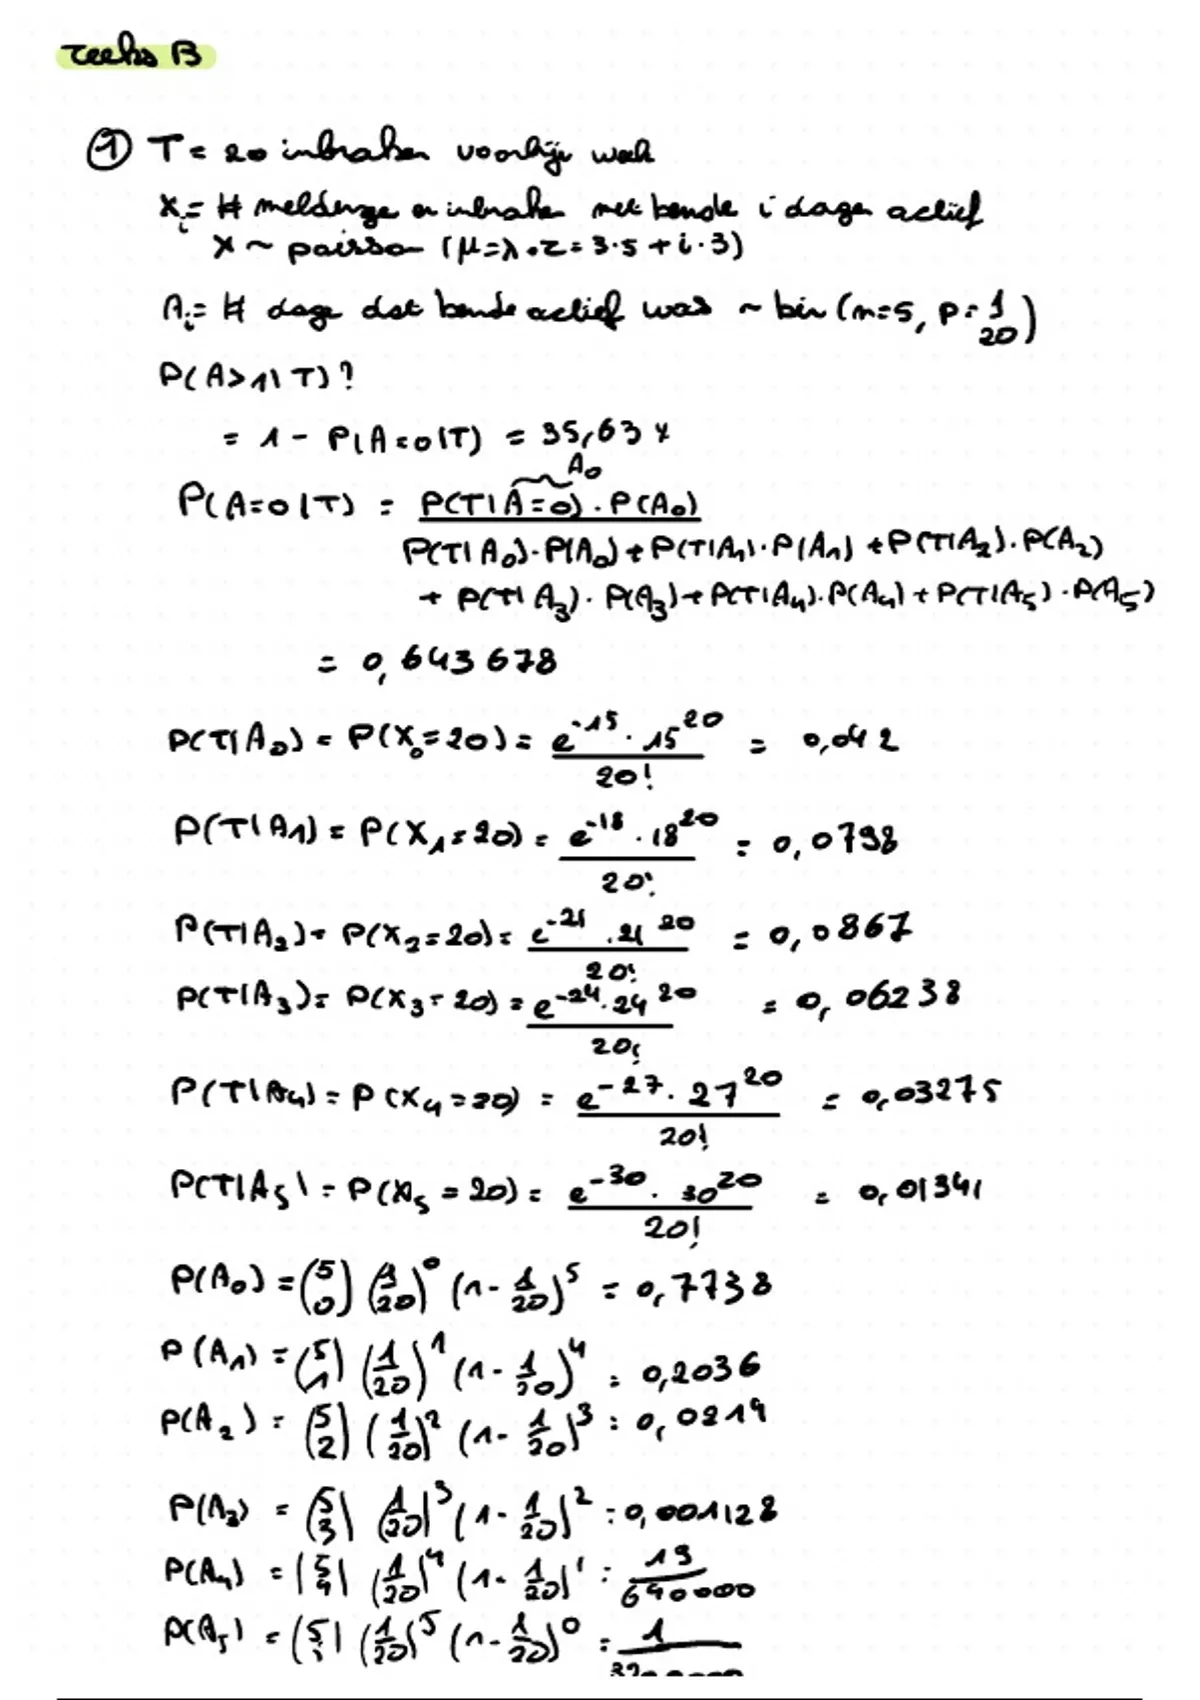 reeks B
① T = 20 inbraken vorige week
Xᵢ = # meldingen inbraken met bende i dagen actief
X ~ poisson (μ = λ . t = 3·5 + i·3)
Aᵢ = # dagen dat bende actief was ~ bin (n=5, p = 1/20)
P(A>1|T)?
= 1 - P(A=0|T) = 35,63 %
A₀
P(A=0|T) = P(T|A=0) . P(A₀)
P(T|A₀)·P(A₀) + P(T|A₁)·P(A₁) + P(T|A₂)·P(A₂)
+ P(T|A₃)·P(A₃) + P(T|A₄)·P(A₄) + P(T|A₅)·P(A₅)
= 0,643678
P(T|A₀) = P(X₀=20) = e⁻¹⁵ · 15²⁰ / 20! = 0,042
P(T|A₁) = P(X₁=20) = e⁻¹⁸ · 18²⁰ / 20! = 0,0798
P(T|A₂) = P(X₂=20) = e⁻²¹ · 21²⁰ / 20! = 0,0867
P(T|A₃) = P(X₃=20) = e⁻²⁴ · 24²⁰ / 20! = 0,06238
P(T|A₄) = P(X₄=20) = e⁻²⁷ · 27²⁰ / 20! = 0,03275
P(T|A₅) = P(X₅=20) = e⁻³⁰ · 30²⁰ / 20! = 0,01341
P(A₀) = (5 0) (1/20)⁰ (1 - 1/20)⁵ = 0,7738
P(A₁) = (5 1) (1/20)¹ (1 - 1/20)⁴ = 0,2036
P(A₂) = (5 2) (1/20)² (1 - 1/20)³ = 0,0214
P(A₃) = (5 3) (1/20)³ (1 - 1/20)² = 0,001128
P(A₄) = (5 4) (1/20)⁴ (1 - 1/20)¹ = 19/640000
P(A₅) = (5 (1/20)⁵ (1 - 1/20)⁰ = 1